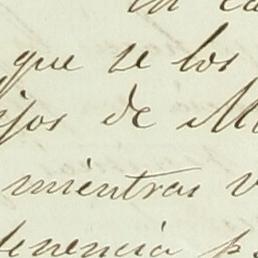 en la
que se los
ijos de M
mientras v
tenencia p